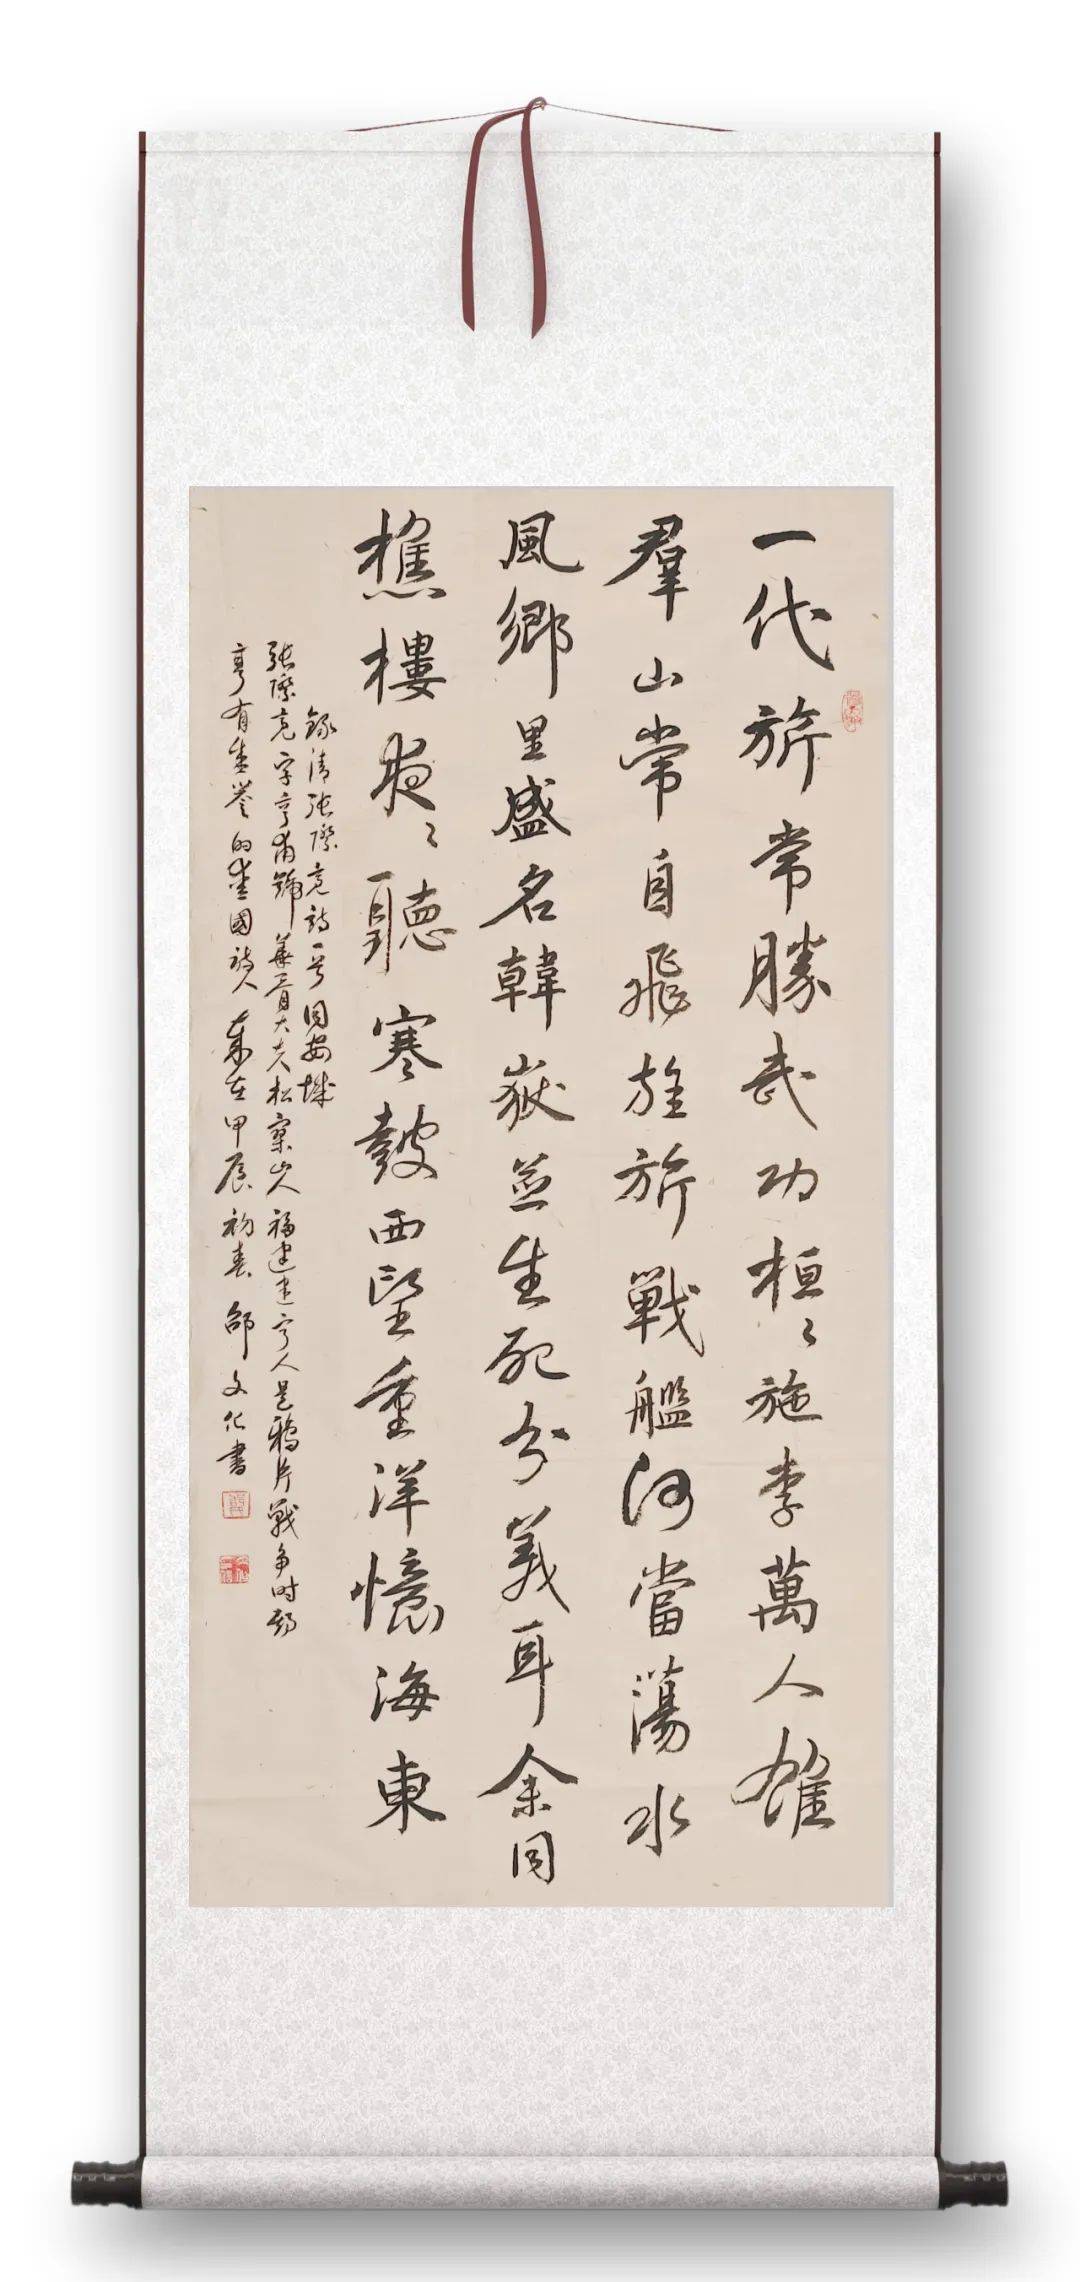 一代旂常勝武功桓〻施李萬人雄
羣山常自飛旌旂戰艦何當蕩水
風鄉里盛名韓嶽並生死分義耳余同
樵樓夜〻聽寒鼓西望重洋憶海東
錄清張際亮詩一首同安城
張際亮字亨甫號華胥大夫松寥山人福建建寧人是鴉片戰争时期
享有盛譽的愛國詩人 歲在甲辰初春邵文化書